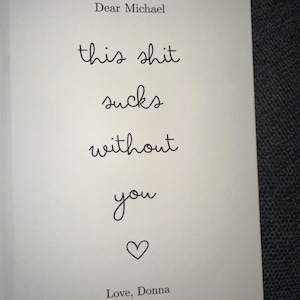 Dear Michael
this shit
sucks
without
you
Love, Donna